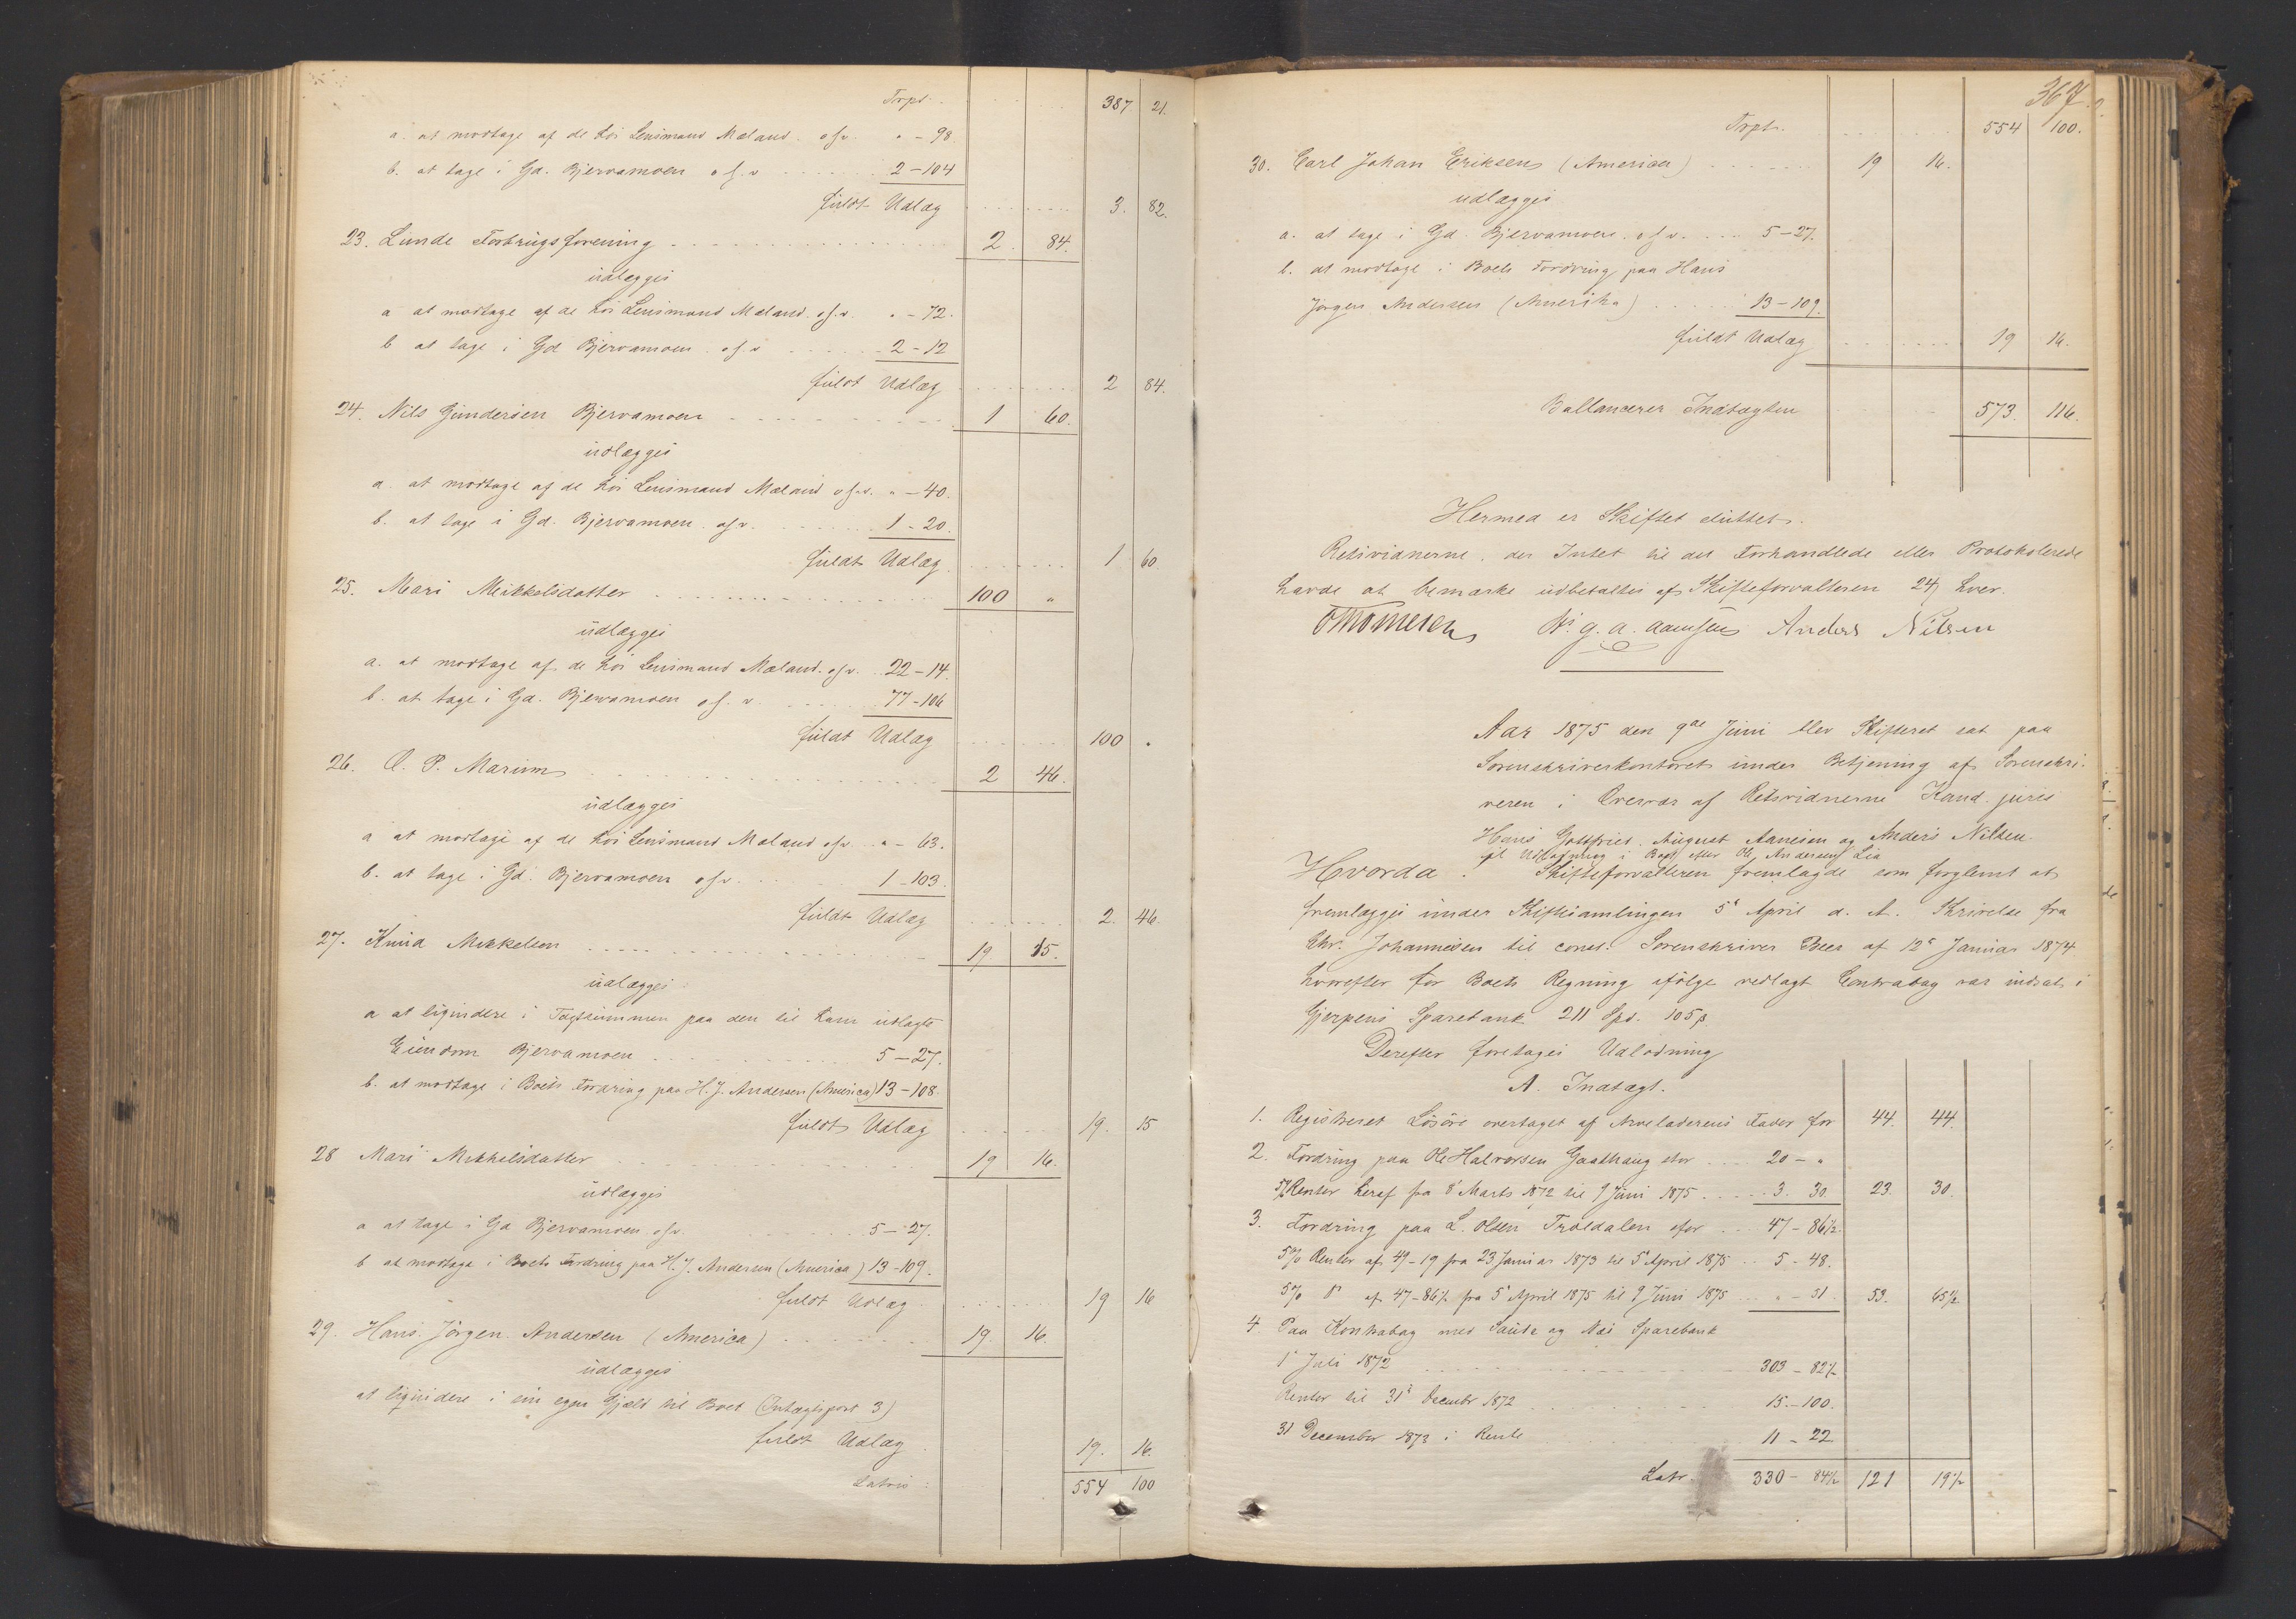 Trpt. 387. 21.
a. at modtage af de hos Lensmand Mæland. osv. " - 98.
b. at tage i Gd. Bjervamoen o s. v. 2 - 104
fuldt Udlæg 3. 82.
23. Lunde Forbrugsforening 2. 84.
udlægges
a at modtage af de hos Lensmand Mæland. o s. v. " - 72.
b at tage i Gd Bjervamoen. o s. v 2 - 12
fuldt Udlæg 2 84.
24. Nils Gundersen Bjervamoen 1 60.
udlægges
a. at modtage af de hos Lensmand Mæland osv. " - 40.
b. at tage i Gd. Bjervamoen. osv. 1 - 20.
fuldt Udlæg 1 60
25. Mari Mikkelsdatter 100 "
udlægges
a. at modtage af de hos Lensmand Mæland. osv. 22 - 14.
b. at tage i Gd. Bjervamoen o s. v. 77 - 106
fuldt Udlæg 100 "
26. O. P. Marum 2 46.
udlægges
a at modtage af de hos Lensmand Mæland osv. " - 63.
b. at tage i Gd. Bjervamoen osv. 1 - 103.
fuldt Udlæg 2. 46.
27. Knud Mikkelsen 19 15.
udlægges
a at liqvidere i Taxtsummen paa den til ham udlagte
Eiendom Bjervamoen 5 - 27.
b. at modtage i Boets Fordring paa H. J. Andersen (America) 13 - 108.
fuldt Udlæg 19. 15
28 Mari Mikkelsdatter 19 16.
udlægges
a at tage i Gd Bjervamoen osv. 5 - 27.
b at modtage i Boets Fordring paa H. J. Andersen (America) 13 - 109.
fuldt Udlæg 19 16
29. Hans Jörgen Andersen (America) 19. 16.
udlægges
at liqvidere i sin egen Gjæld til Boet (Indtægtspost 3)
fuldt Udlæg 19. 16
Latus: 554 100
367.
Trpt. 554 100.
30. Carl Johan Eriksen (America) 19 16.
udlægges
a. at tage i Gd. Bjervamoen. osv. 5 - 27.
b. at modtage i Boets Fordring paa Hans
Jörgen Andersen (Amerika) 13 - 109.
fuldt Udlæg 19 16.
Ballancerer Indtægten 573. 116.
Hermed er Skiftet sluttet.
Retsvidnerne, der Intet til det Forhandlede eller Protokolerede
havde at bemærke udbetaltes af Skifteforvalteren 24 s hver.
Thomesen H. G. A. Aanesen Anders Nilsen
Aar 1875 den 9de Juni blev Skifteret sat paa
Sorenskriverkontoret under Betjening af Sorenskri-
veren i Overvær af Retsvidnerne Kand. juris
Hans Gottfried August Aanesen og Anders Nilsen.
til Udlodning i Boet efter Ole Andersen Lia
Hvorda: Skifteforvalteren fremlagde som forglemt at
fremlægges under Skiftesamlingen 5te April d. A. Skrivelse fra
Chr. Johannesen til const. Sorenskriver Beer af 12te Januar 1874
hvorefter for Boets Regning ifølge vedlagt Contrabog var indsat i
Gjerpens Sparebank 211 Spd. 105 s
Derefter foretages Udlodning
A. Indtægt.
1. Registreret Lösöre overtaget af Arveladerens Fader for 44. 44.
2. Fordring paa Ole Halvorsen Gaathaug stor 20 - "
5% Renter heraf fra 8de Marts 1872 til 9 Juni 1875 3. 30. 23. 30.
3. Fordring paa L. Olsen Troldalen stor 47 - 86½
5% Renter af 49 - 19 fra 23 Januar 1873 til 5te April 1875 5 - 48.
5% do af 47 - 86½ fra 5te April 1875 til 9 Juni 1875 " - 51 53. 65½
4. Paa Kontrabog med Saude og Næs Sparebank
1ste Juli 1872 303 - 82½
Renter til 31te Decembr 1872 15. - 100.
31 December 1873 i Rente 11 - 22
Latr. 330 - 84½ 121 19½